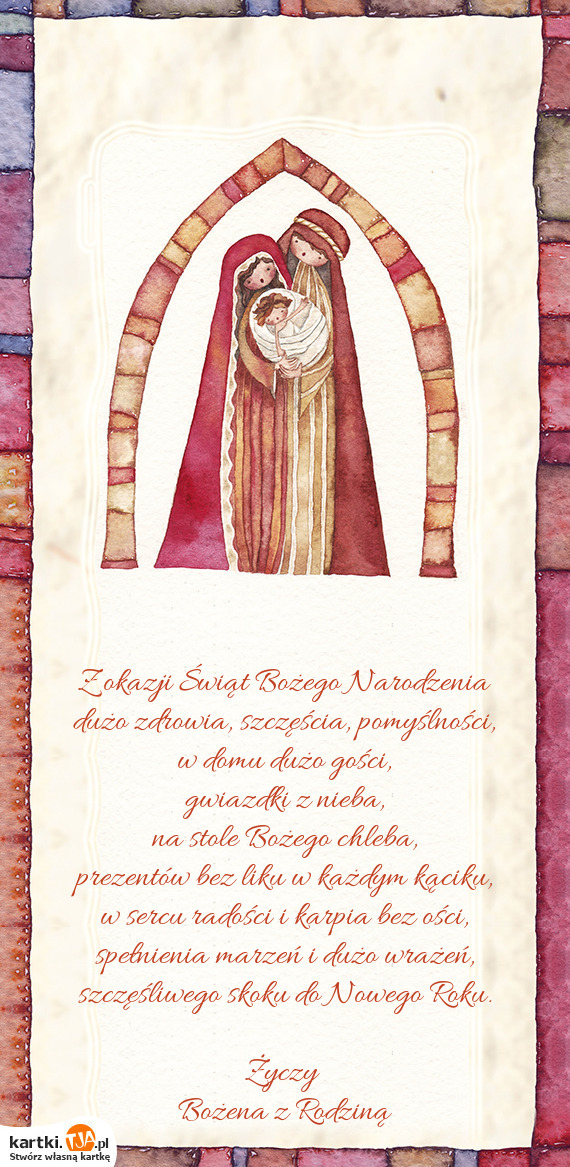 Z okazji Świąt Bożego Narodzenia
dużo zdrowia, szczęścia, pomyślności,
w domu dużo gości,
gwiazdki z nieba,
na stole Bożego chleba,
prezentów bez liku w każdym kąciku,
w sercu radości i karpia bez ości,
spełnienia marzeń i dużo wrażeń,
szczęśliwego skoku do Nowego Roku.
Życzy
Bożena z Rodziną
kartki.TJA.pl
Stwórz własną kartkę